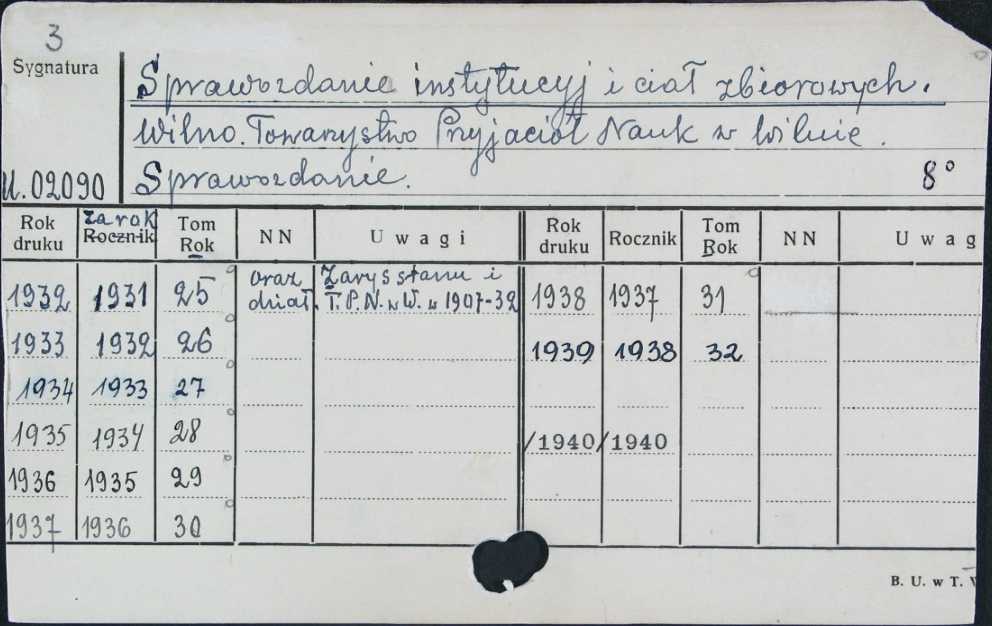 3
Sygnatura
Sprawozdanie instytucyj i ciał zbiorowych.
Wilno. Towarzystwo Przyjaciół Nauk w Wilnie.
U.02090 Sprawozdanie. 8°
Rok druku za rok Rocznik Tom Rok NN Uwagi Rok druku Rocznik Tom Rok NN Uwag
1932 1931 25 oraz Zarys stanu i 1938 1937 31
dział. T.P.N. w W. w 1907-32
1933 1932 26 1939 1938 32
1934 1933 27
1935 1934 28 /1940/ 1940
1936 1935 29
1937 1936 30
B. U. w T.